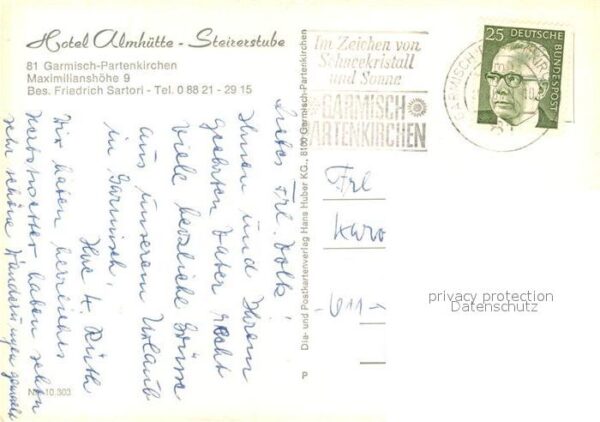 Hotel Almhütte - Steirerstube
81 Garmisch-Partenkirchen
Maximilianshöhe 9
Bes. Friedrich Sartori - Tel. 0 88 21 - 29 15
Liebes Frl. Volk!
Ihnen und Ihrem
geehrten Vater recht
viele herzliche Grüsse
aus unserem Urlaub
in Garmisch!
Ihre
Wir haben herrliches
Herbstwetter haben schon
sehr schöne Wanderungen gemacht
Nr. 10.303
Dia- und Postkartenverlag Hans Huber KG., 8100 Garmisch-Partenkirchen
P
Im Zeichen von
Schneekristall
und Sonne
GARMISCH
PARTENKIRCHEN
25
DEUTSCHE
BUNDESPOST
Frl
Karo
- 611 -
privacy protection
Datenschutz